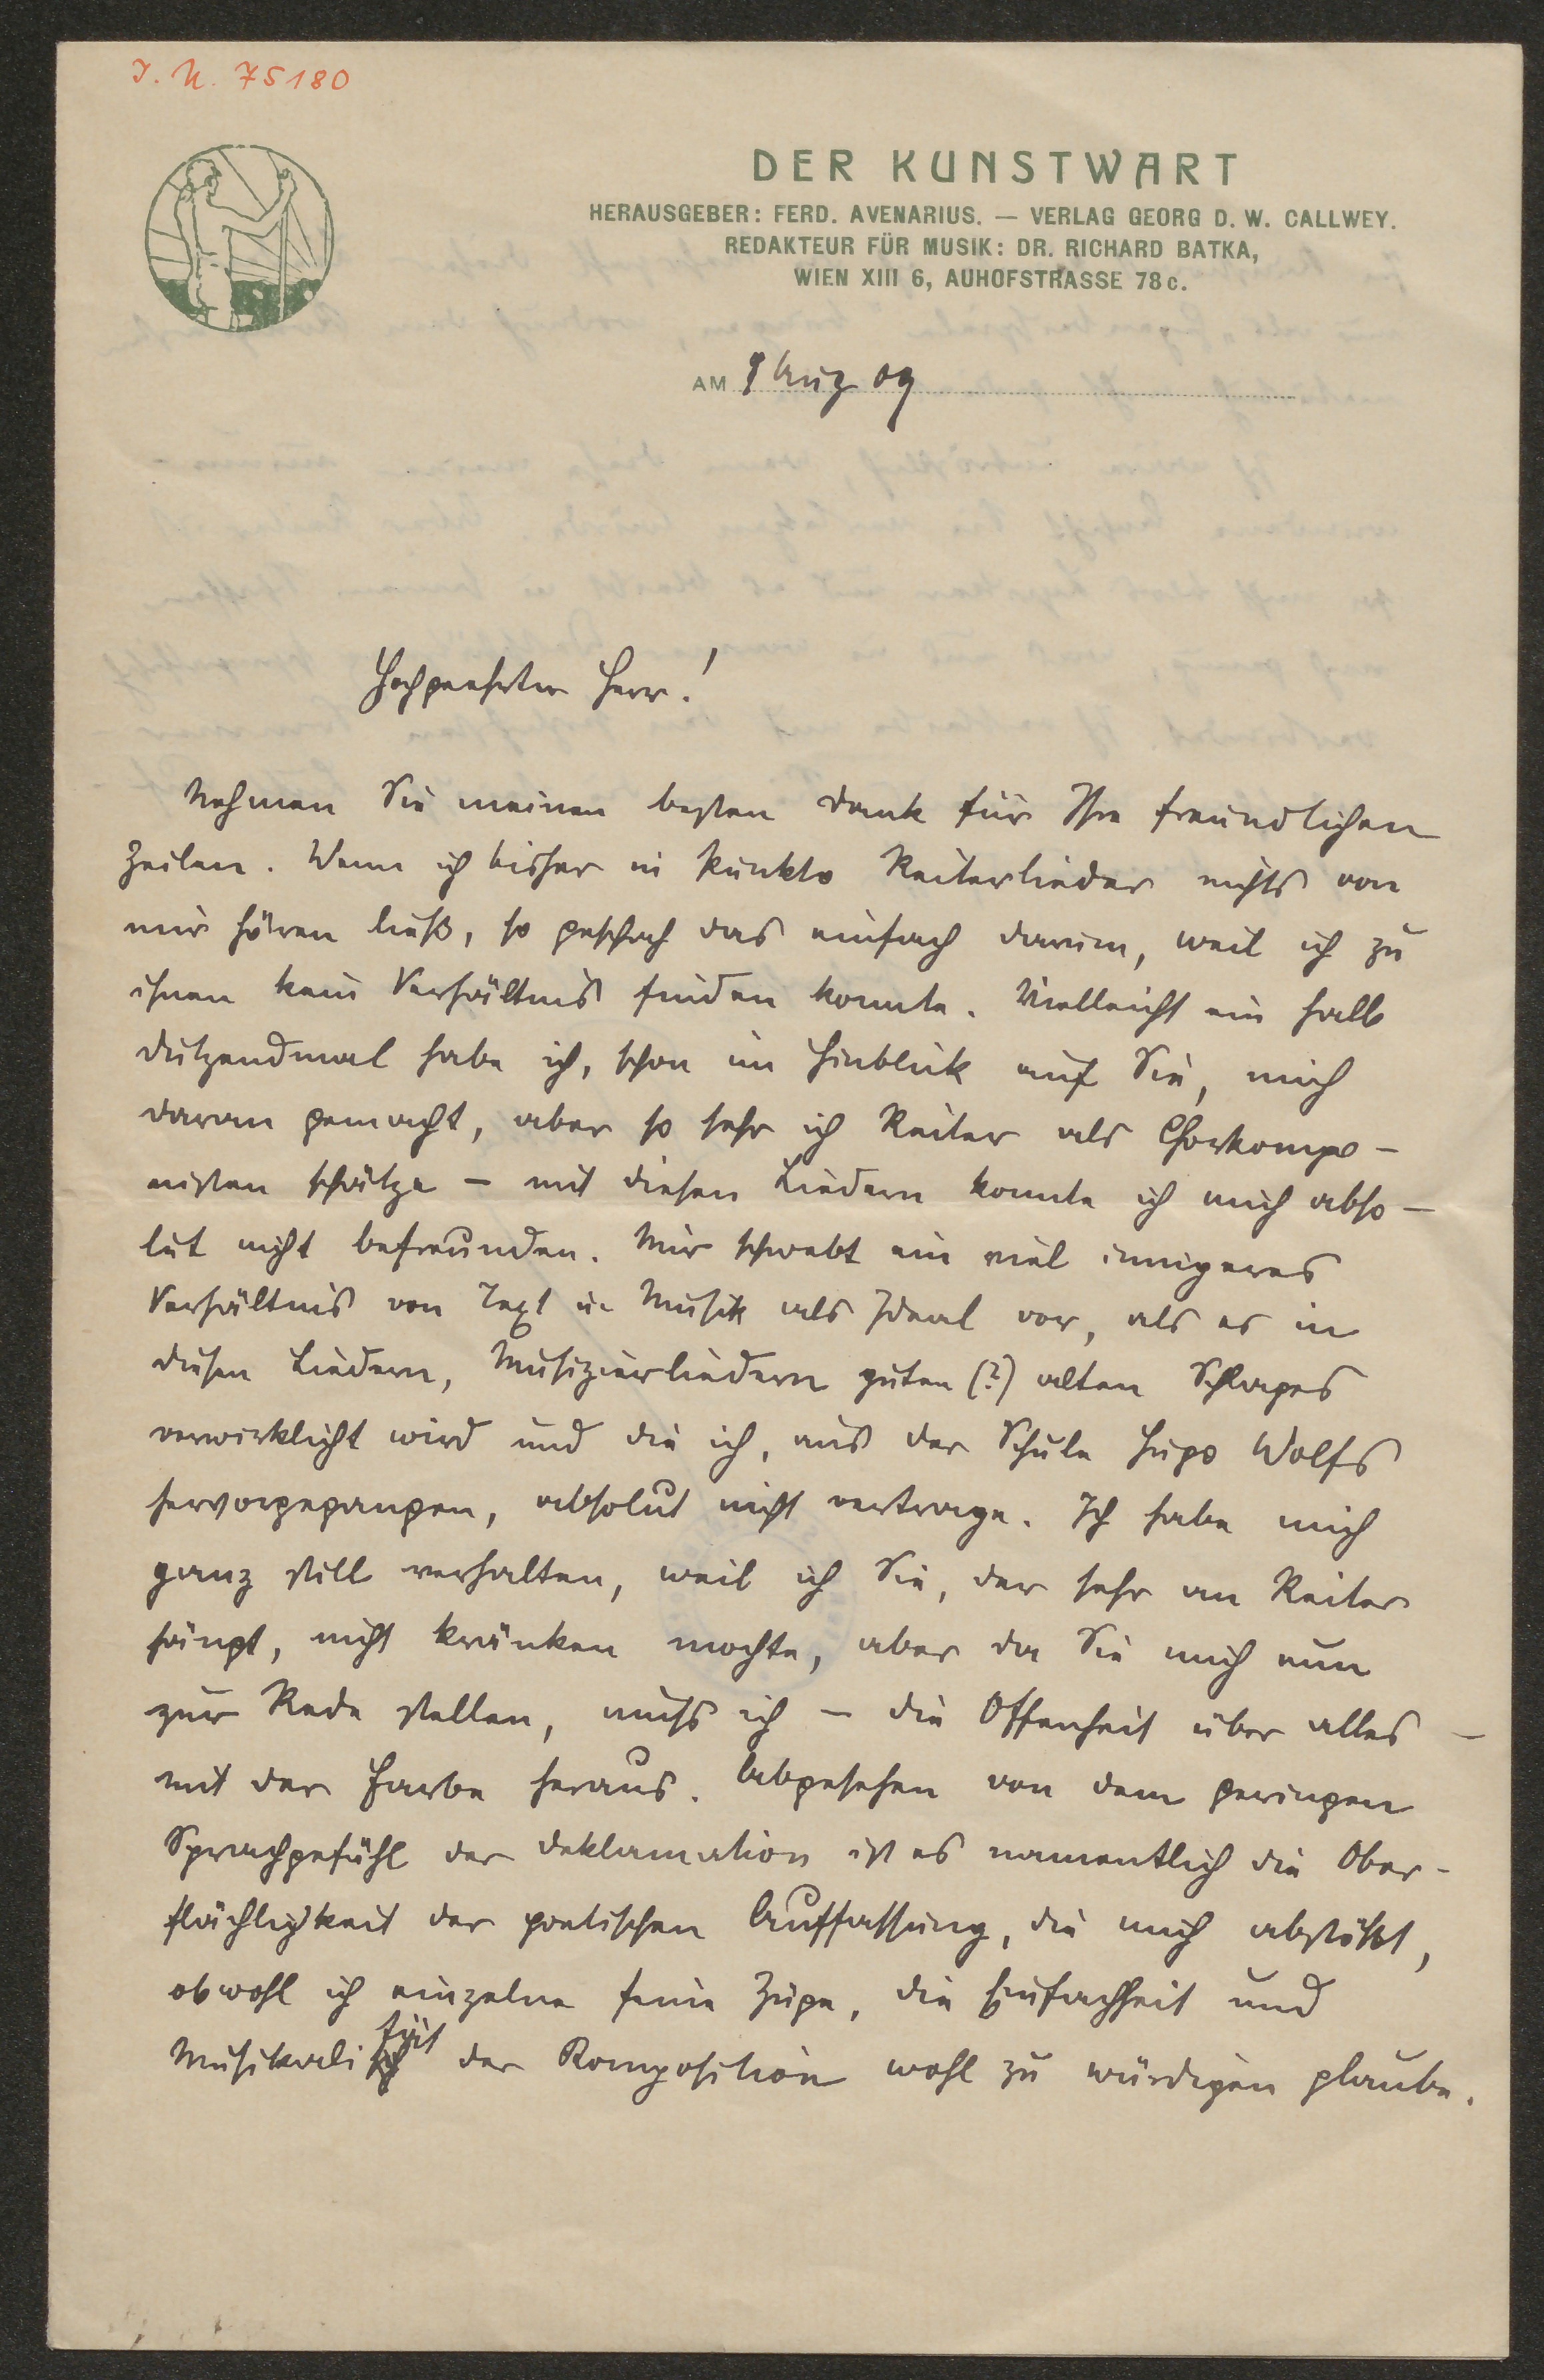 I. N. 75180
DER KUNSTWART
HERAUSGEBER: FERD. AVENARIUS. — VERLAG GEORG D. W. CALLWEY.
REDAKTEUR FÜR MUSIK: DR. RICHARD BATKA,
WIEN XIII 6, AUHOFSTRASSE 78c.
AM 9 Aug 09
Hochgeehrter Herr!
Nehmen Sie meinen besten Dank für Ihre freundlichen
Zeilen. Wenn ich bisher in Punkto Reiterlieder nichts von
mir hören ließ, so geschah das einfach darum, weil ich zu
ihnen kein Verhältnis finden konnte. Vielleicht ein halb
dutzendmal habe ich, schon im Hinblick auf Sie, mich
daran gemacht, aber so sehr ich Reiter als Chorkompo-
nisten schätze – mit diesen Liedern konnte ich mich abso-
lut nicht befreunden. Mir schwebt ein viel innigeres
Verhältnis von Text u. Musik als Ideal vor, als es in
diesen Liedern, Musizierliedern guten (?) alten Schlages
verwirklicht wird und die ich, aus der Schule Hugo Wolfs
hervorgegangen, absolut nicht vertrage. Ich habe mich
ganz still verhalten, weil ich Sie, der sehr an Reiter
hängt, nicht kränken mochte, aber da Sie mich nun
zur Rede stellen, muß ich – die Offenheit über alles –
mit der Farbe heraus. Abgesehen von dem geringen
Sprachgefühl der Deklamation ist es namentlich die Ober-
flächligkeit der poetischen Auffassung, die mich abstößt,
obwohl ich einzelne feine Züge, die Einfachheit und
Musikali tät der Komposition wohl zu würdigen glaube.